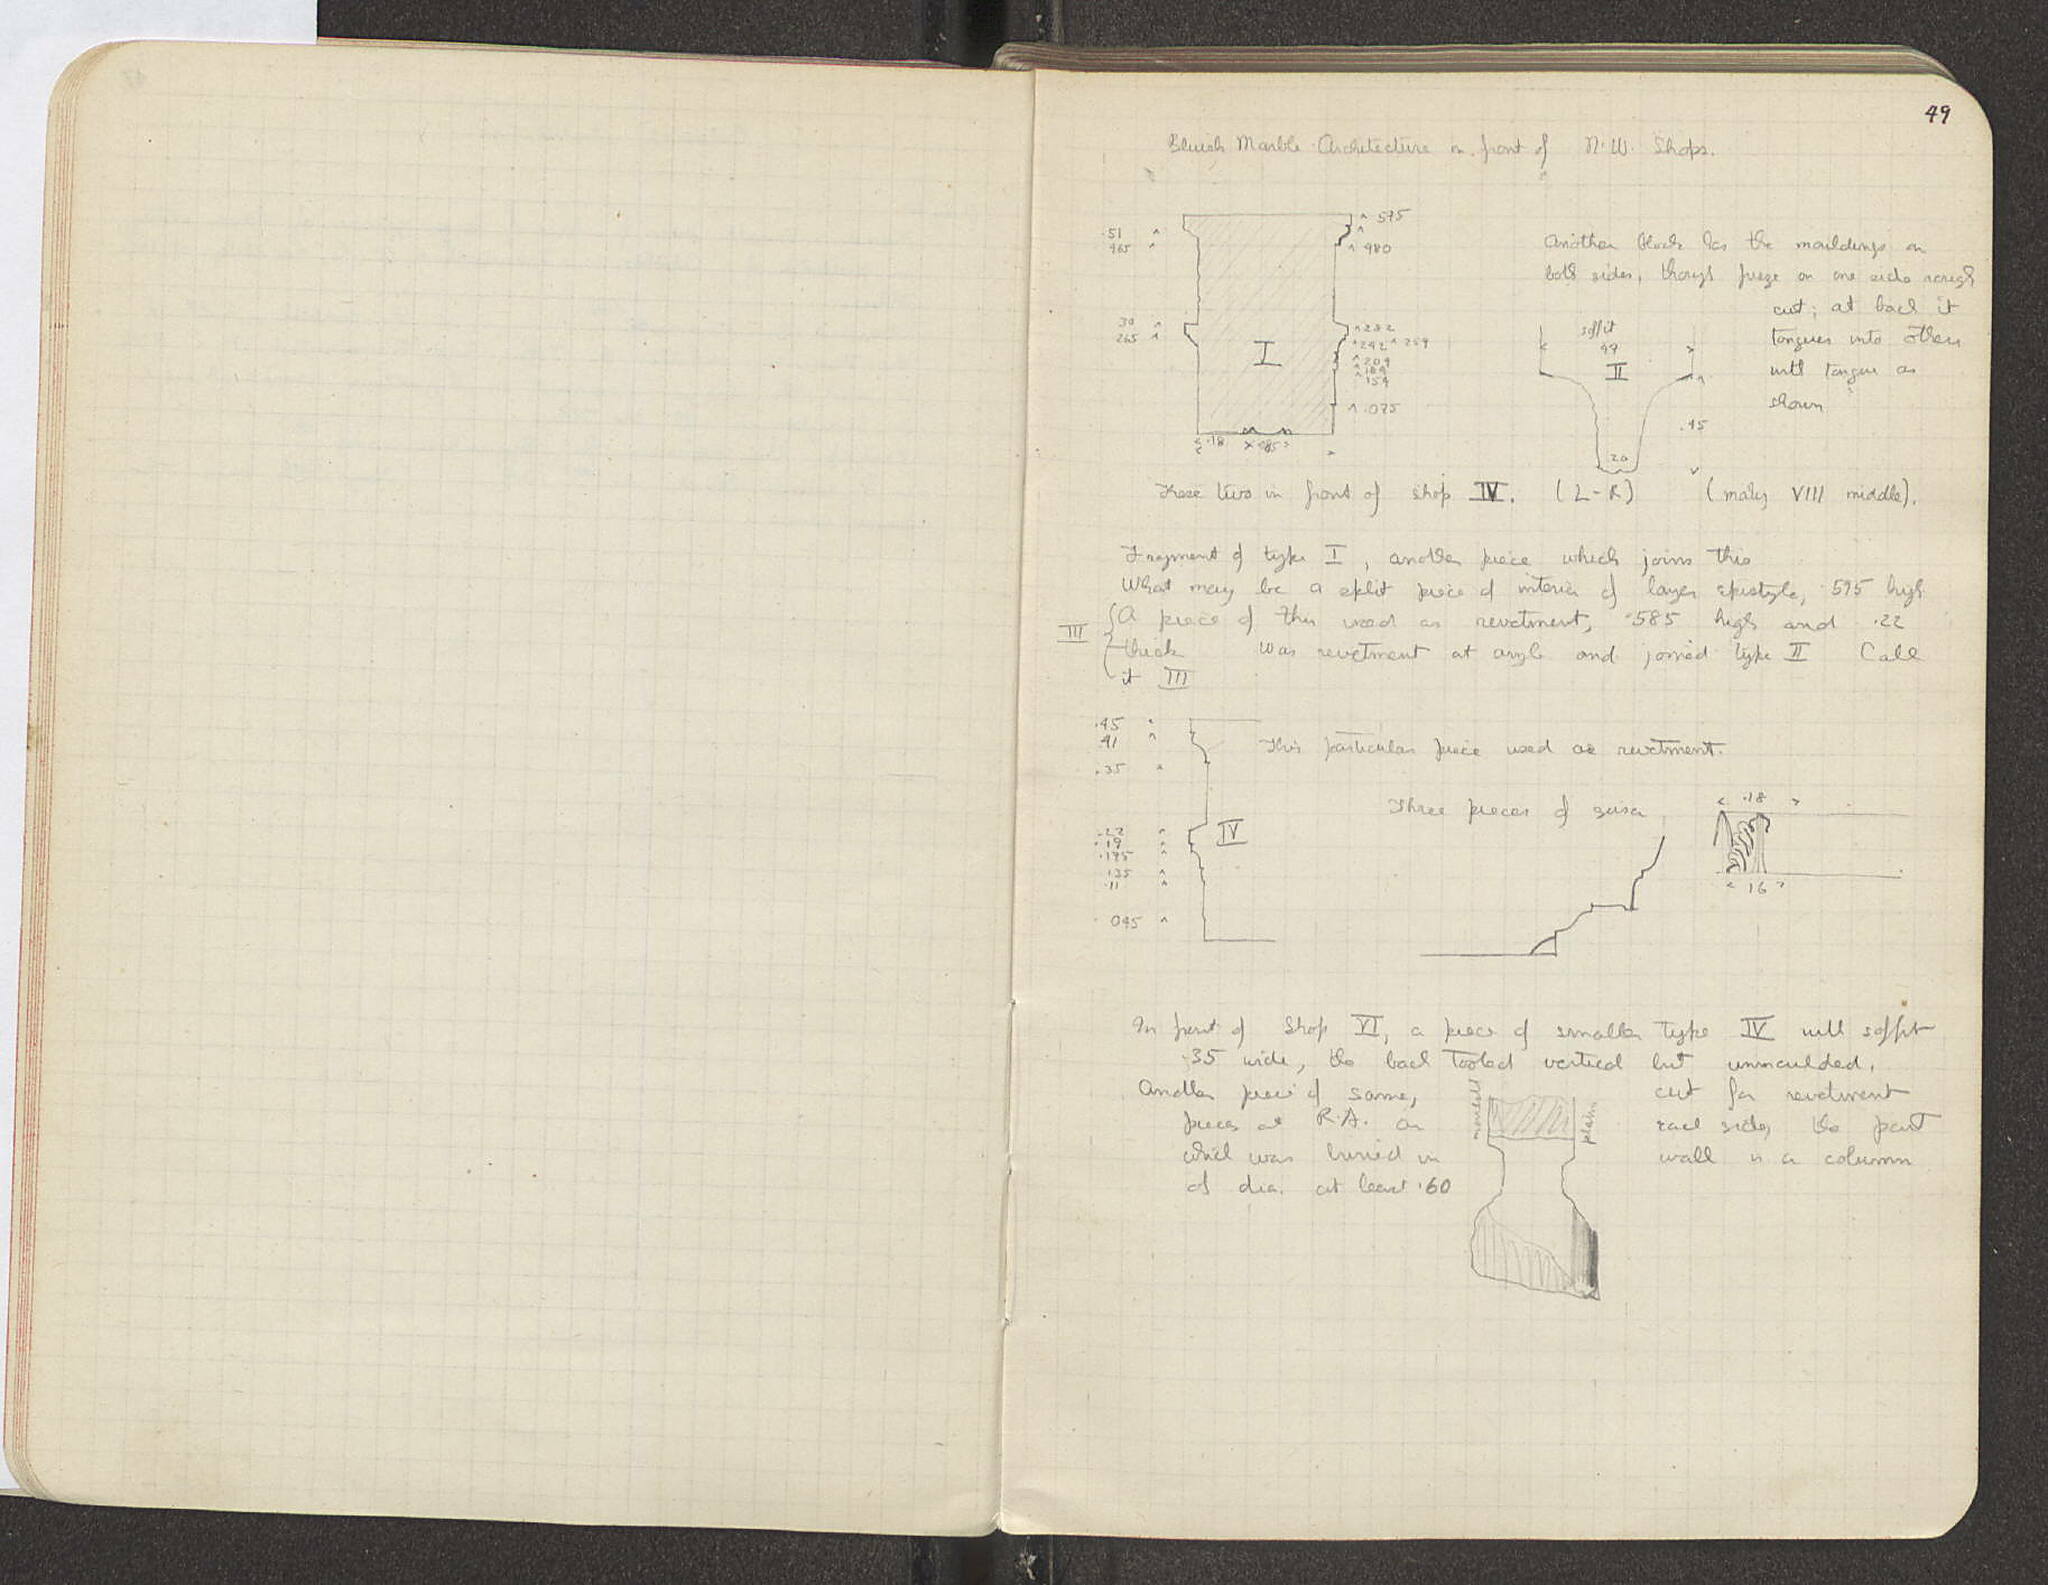 49
Bluish Marble Architecture in front of N.W. Shops.
.575
.51
.465
.480
Another block has the mouldings on
both sides, though frieze on one side rough
cut; at back it
tongues into others
with tongue as
shown
30
265
.282
.242 .259
.209
.189
.154
.075
I
.18
.085
soffit
49
II
.45
.20
These two in front of shop IV. (L-R) (maky VIII middle).
Fragment of type I, another piece which joins this
What may be a split piece of interior of larger epistyle, .595 high
III
A piece of this used as revetment, .585 high and .22
thick Was revetment at angle and joined type II Call
it III
.45
.41
.35
This particular piece used as revetment.
Three pieces of
.18
.16
.22
.19
.175
.135
.11
.045
IV
In front of Shop VI, a piece of smaller type IV with soffit
.35 wide, the back tooled vertical but unmoulded.
Another piece of same, cut for revetment
pieces at R.A. on each side, the part
which was buried in wall is a column
of dia. at least .60
mould
plain